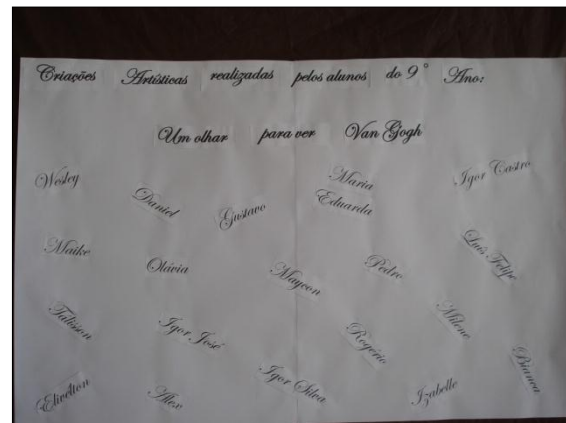 Criações Artísticas realizadas pelos alunos do 9º Ano:
Um olhar para ver Van Gogh
Wesley
Daniel
Gustavo
Maria
Eduarda
Igor Castro
Maike
Olávia
Maycon
Pedro
Luis Felipe
Talisson
Igor José
Rogério
Milene
Bianca
Elivelton
Alex
Igor Silva
Izabelle